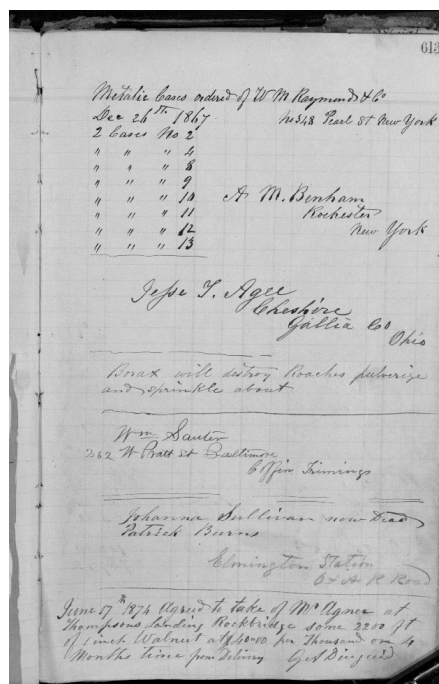 613
Metalic Cases ordered of W M Raymond & Co
Dec 26th 1867. No 348 Pearl St New York
2 Cases No 2
" " " 4
" " " 8
" " " 9
" " " 10 A M. Benham
" " " 11 Rochester
" " " 12 New York
" " " 13
Jesse T. Agee
Cheshire
Gallia Co
Ohio
Borax will distroy Roaches pulverize
and sprinkle about
Wm Sauter
262 W Pratt St Baltimore
Coffin Trimings
Johanna Sullivan now Dead
Patrick Burns
Elmington Station
O & A R Road
June 17th 1874 Agreed to take of Mr Agner at
Thompsons Landing Rockbridge some 2200 ft
of 1 inch Walnut at $40.00 per Thousand on 4
Months time from Delivery